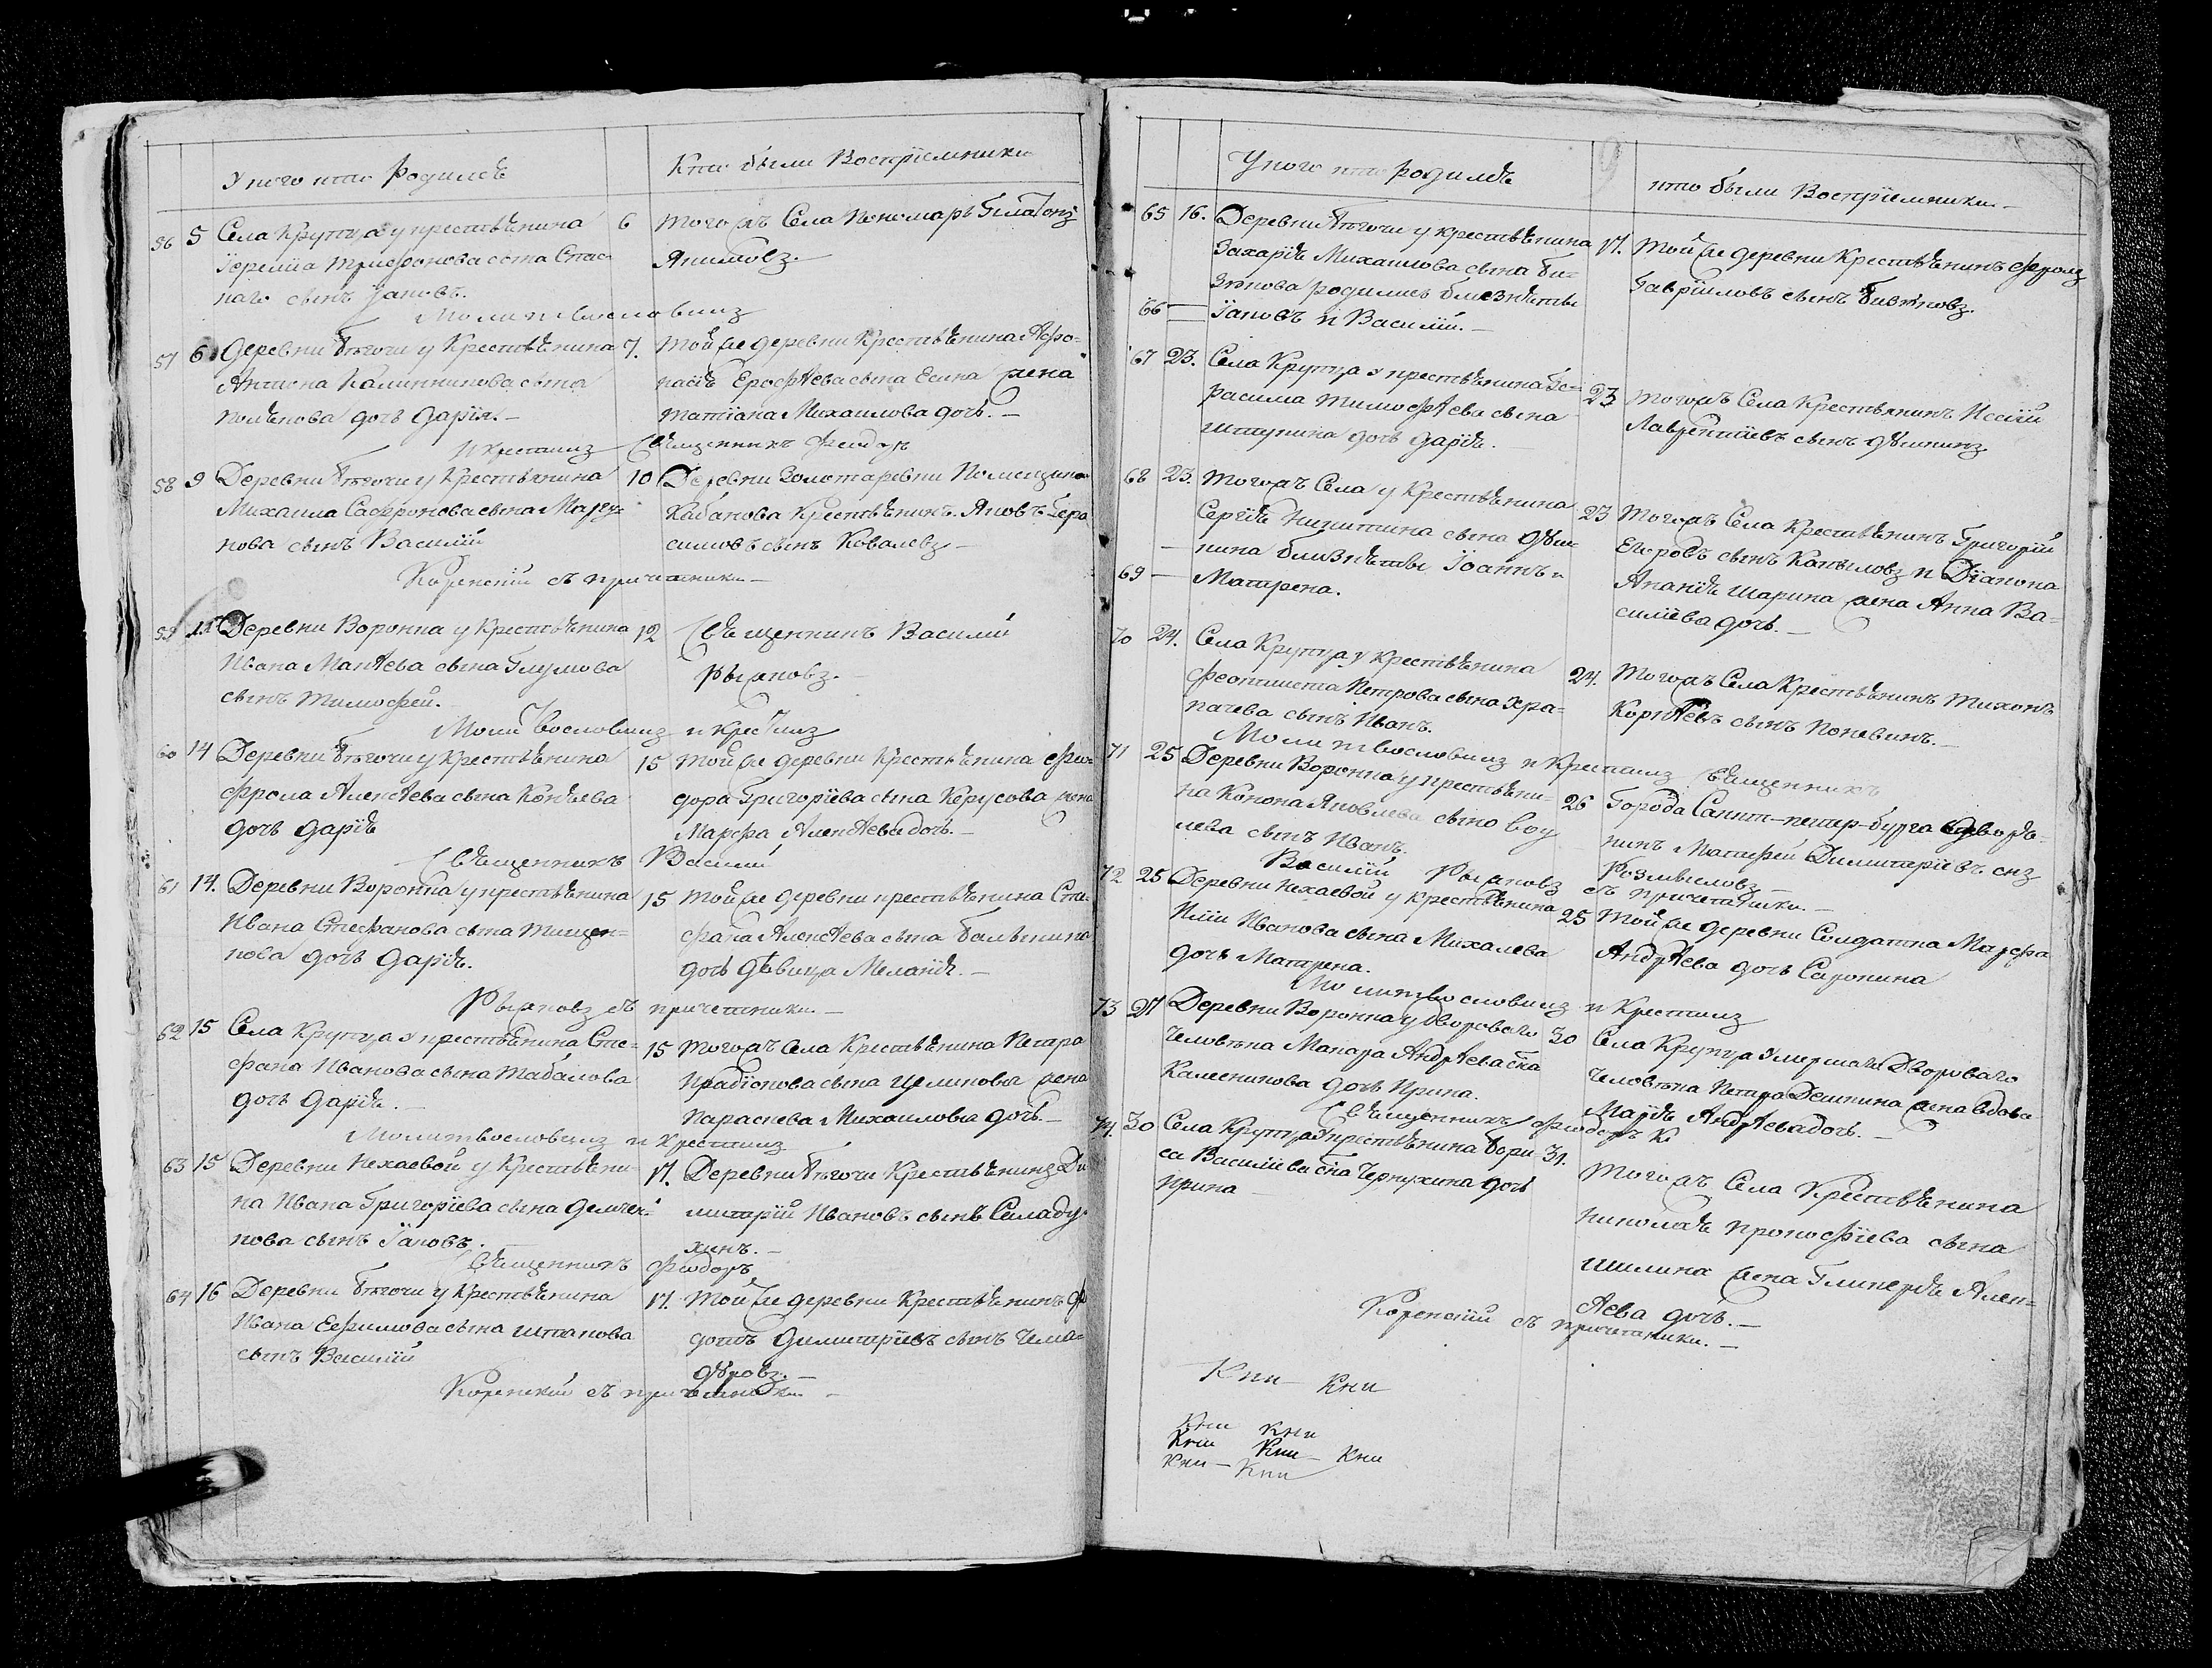 У ково кто родилсѧ
Кто были Восприемники
56 5 Села Крупца у крестьѧнина
Iеремiѧ Трифонова сына Спас-
каго сынъ Iаковъ.
6 Тогожъ Села Пономарь Платонъ
Якимовъ.
Молитвословилъ
57 6 Деревни Бѣгочи у Крестьѧнина
Антона Калинникова сына
дочь Дарiя.
7. Той же деревни Крестьѧнина Афо-
насiѧ Ерофѣева сына Есина жена
Татiана Михаилова дочь.
И крестилъ Свѧщенникъ Феодоръ
58 9 Деревни Бѣгочи у Крестьянина
Михаила Сафронова сына Марту-
нова сынъ Василiй
10 Деревни Золотаревки Помещика
Кабанова Крестьѧнинъ Яковъ Гера
симовъ сынъ Ковалевъ
Коренскiй съ причетники
59 Деревни Воронка у Крестьѧнина
Ивана Макѣева сына Глумова
сынъ Тимофей.
12 Свѧщенникъ Василiй
Рыжковъ.
Молитвословилъ и крестилъ
60 14 Деревни Бѣгочи у Крестьѧнина
Фрола Алексѣева сына
дочь Дарiѧ
15 Той же деревни Крестьѧнина Фео-
дора Григорiева сына Керусова жена
Марфа Алексѣева дочь.
Свѧщенникъ Василiй
61 14. Деревни Воронка у крестьѧнина
Ивана Стефанова сына Тищен-
кова дочь Дарiѧ.
15 Той же деревни крестьѧнина Сте-
фана Алексѣева сына
дочь дѣвица Меланiѧ.
Рыжковъ съ причетники.
62 15 Села Крупца у крестьѧнина Сте-
фана Иванова сына Табакова
дочь Дарiѧ.
15 Тогожъ Села Крестьѧнина Петра
Иродiонова сына Целикова жена
Параскева Михаилова дочь.
Молитвословилъ и Крестилъ
63 15 Деревни Нехаевой у Крестьѧни
на Ивана Григорiева сына Демчен-
кова сынъ Iаковъ.
17. Деревни Бѣгочи Крестьѧнинъ Ди
митрiй Ивановъ сынъ Селаду-
хинъ.
Свѧщенникъ Феодоръ
64 16 Деревни Бѣгочи у Крестьѧнина
Ивана Ефимова сына Шпакова
сынъ Василiй
17. Той же деревни Крестьѧнинъ Фе
дотъ Димитрiевъ сынъ
Коренскiй съ причетники
У ково кто родилсѧ
9
кто были Восприемники
65 16. Деревни Бѣгочи у крестьѧнина
Захарiѧ Михаилова сына Би-
зюкова родились близнѣцы
66 Iаковъ и Василiй.
17. Той же деревни Крестьѧнинъ Фролъ
Гаврiиловъ сынъ Бизюковъ.
67 23. Села Крупца у крестьѧнина Ге-
расима Тимофѣева сына
Шатунина дочь Дарiѧ.
23 Тогожъ Села Крестьянинъ
Лаврентiевъ сынъ Дѣшинъ
68 23. Тогожъ Села у Крестьѧнина
Сергiѧ Никитина сына Дѣш-
кина близнѣцы Iоаннъ и
69 Матрена.
23 Тогожъ Села Крестьѧнинъ Григорiй
Егоровъ сынъ Копыловъ и Дiакона
Ананiѧ Шарина жена Анна Ва-
силiева дочь.
70 24. Села Крупца у Крестьѧнина
Феоктиста Петрова сына Хра-
пачева сынъ Иванъ.
24. Тогожъ Села Крестьѧнинъ Тихонъ
Корнѣевъ сынъ Поневинъ.
Молитвословилъ и Крестилъ Свѧщенникъ
71 25 Деревни Воронка у крестьѧни-
на Конона Яковлева сына
сынъ Иванъ.
26 Города Санкт-петер-бурга
Матфей Димитрiевъ снъ
Розмысловъ
Василiй Рыжковъ съ причетники.
72 25 Деревни Нехаевой у крестьѧнина
Илiи Иванова сына Михалева
дочь Матрена.
25 Той же деревни Солдатка Марфа
Андрѣева дочь Саронина
Молитвословилъ и Крестилъ
73 27 Деревни Воронка у дворового
человѣка Макара Андрѣева сна
Калесникова дочь Ирина.
30 Села Крупца умершаго Дворового
человѣка Петра Дешкина жена вдова
Марiѧ Андрѣева дочь.
Свѧщенникъ Феодоръ Ко
74. 30 Села Крупца у крестьѧнина Бори
са Василiева сна Чернухина дочь
Ирина
31. Тогожъ Села Крестьѧнина
Николаѧ Прокофiева сына
Шилина жена Гликерiѧ Алек-
сѣева дочь.
Коренскiй съ причетники.
Кни Кни
Кни Кни
Кни Кни Кни
Кни Кни